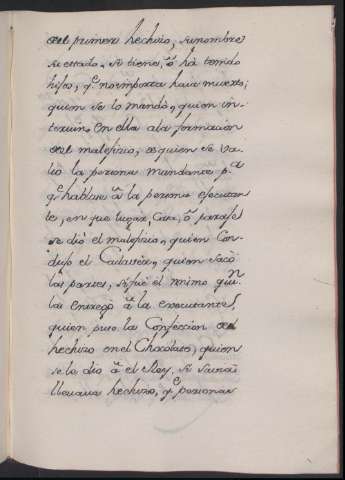 del primer hechizo, su nombre
su estado, si tiene, ô há tenido
hijos, q.e no importa haia muerto;
quien se lo mandò, quien in-
tervino en ella a la formacion
del malefizio, de quien se va-
lió la persona mandante p.a
q.e hablar â la persona ejecutan
te, en que lugar, Casa, ô paraje
se diò el malefizio, quien Con-
dujo el Cadaver, quien sacò
las partes, si fuè el mismo qu.n
las entregò â la executante,
quien puso la Confeccion del
hechizo en el Chocolate, quien
se lo dio â el Rey, si
llevava hechizo, q.e personas